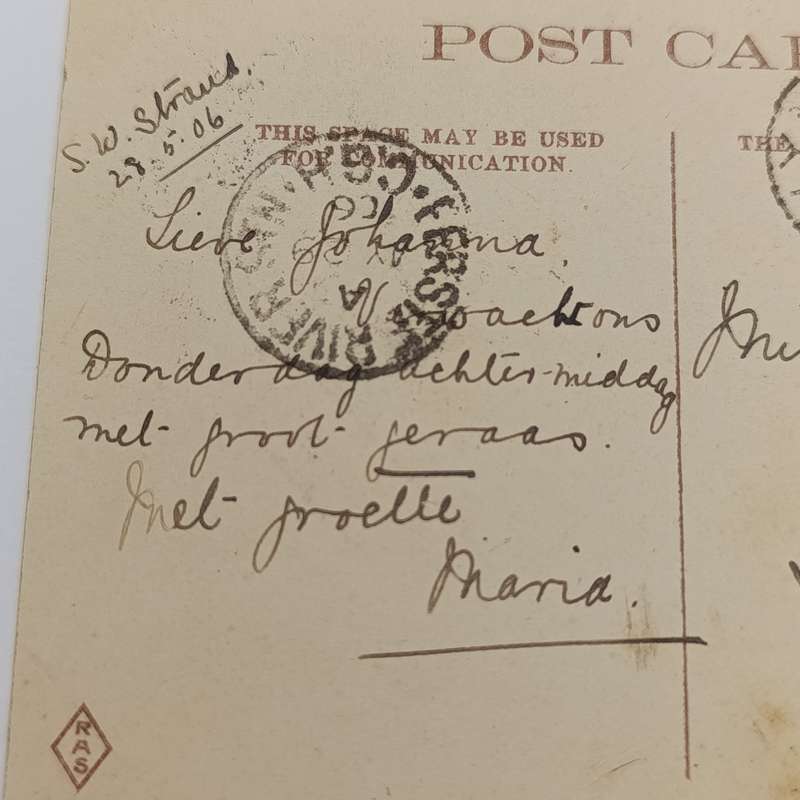 POST CA
S. W. Strand.
28.5.06
THIS SPACE MAY BE USED
FOR COMMUNICATION.
THE
Lieve Johanna,
Verwacht ons
Donderdag achter-middag
met groot geraas.
Met groette
Maria.
RIVER STN.
C.G.H.
A
RAS